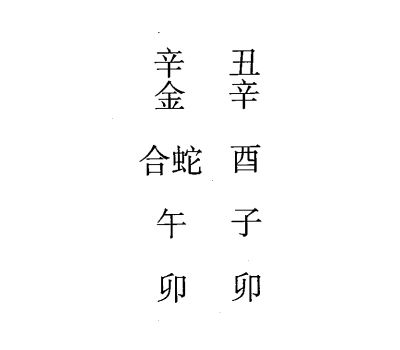 辛 丑
金 辛
合蛇 酉
午 子
卯 卯